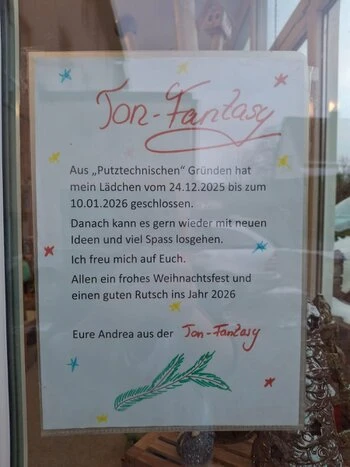 Ton-Fantasy
Aus „Putztechnischen“ Gründen hat
mein Lädchen vom 24.12.2025 bis zum
10.01.2026 geschlossen.
Danach kann es gern wieder mit neuen
Ideen und viel Spass losgehen.
Ich freu mich auf Euch.
Allen ein frohes Weihnachtsfest und
einen guten Rutsch ins Jahr 2026
Eure Andrea aus der Ton-Fantasy